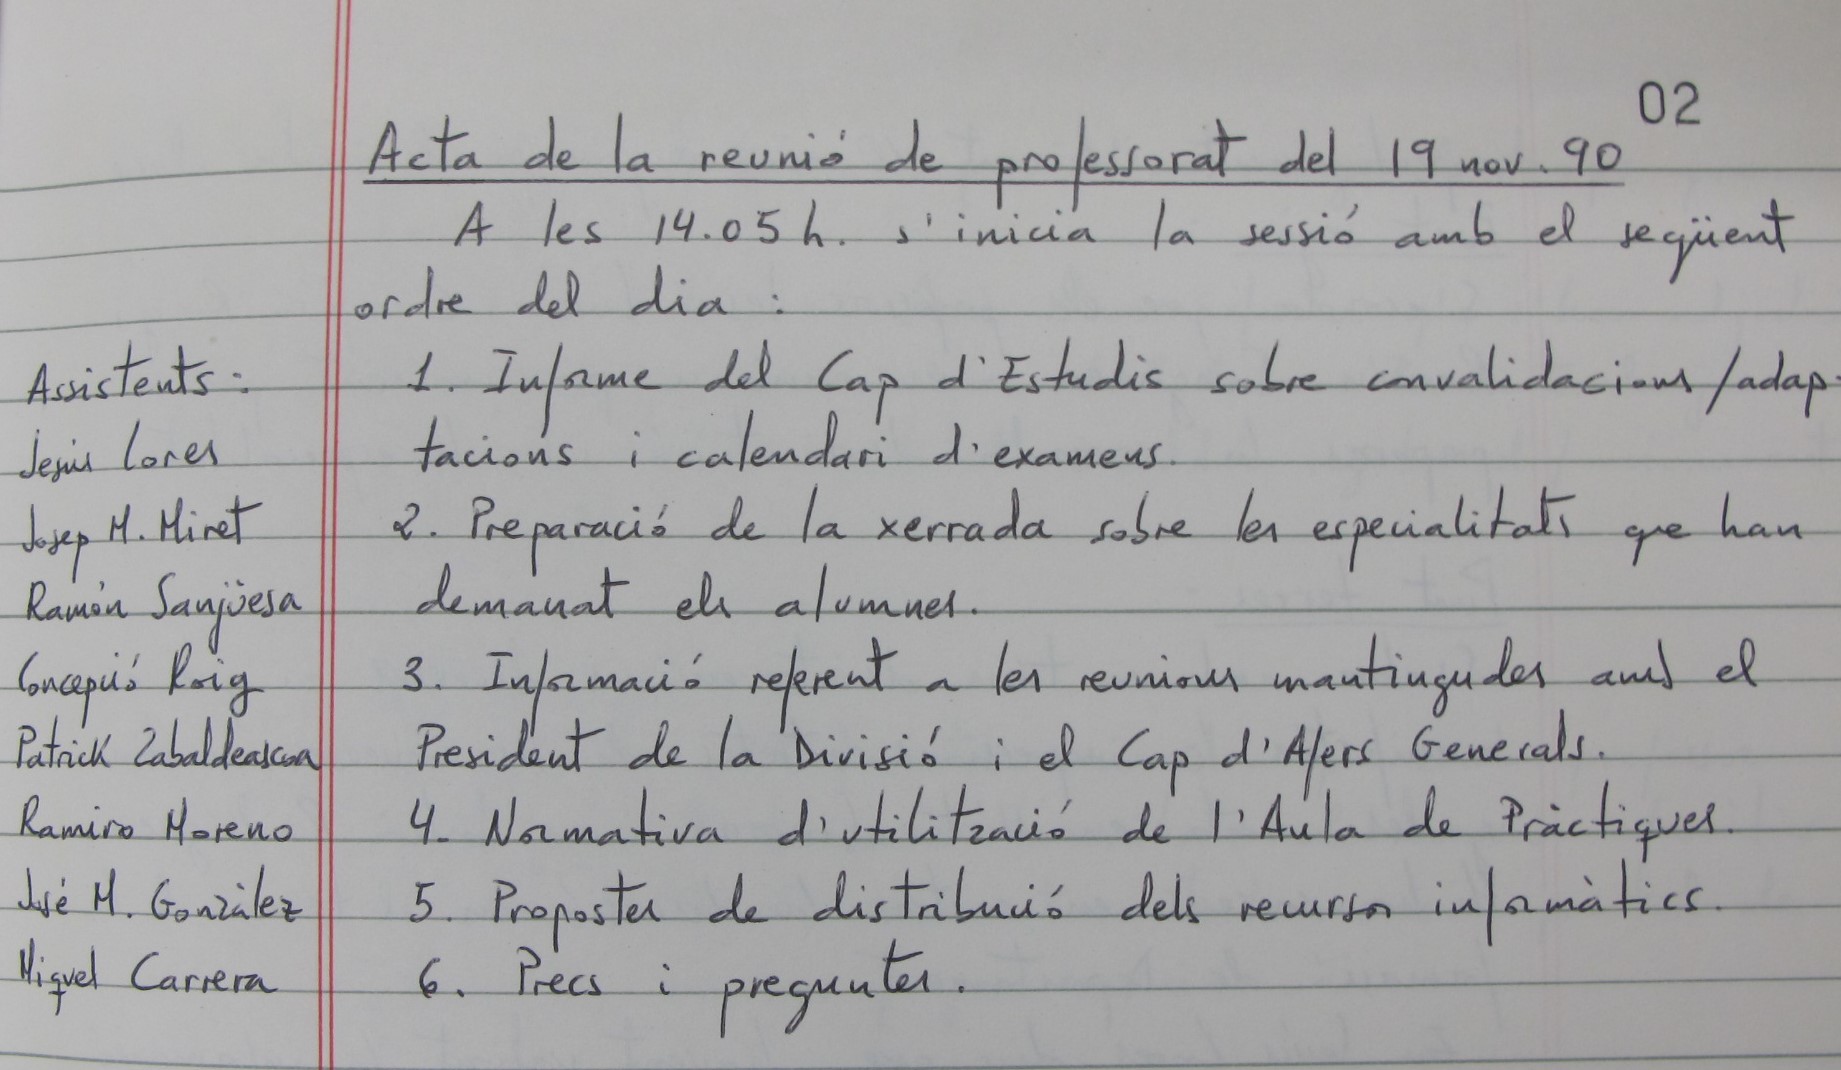 02
Acta de la reunió de professorat del 19 nov. 90
A les 14.05 h. s'inicia la sessió amb el següent
ordre del dia :
Assistents :
Jesús Lorés
Josep M. Miret
Ramón Sangüesa
Concepció Roig
Patrick Zabaldeascoa
Ramiro Moreno
José M. González
Miquel Carrera
1. Informe del Cap d'Estudis sobre convalidacions/adap-
tacions i calendari d'exameus.
2. Preparació de la xerrada sobre les especialitats que han
demanat els alumnes.
3. Informació referent a les reunions mantingudes amb el
President de la Divisió i el Cap d'Afers Generals.
4. Normativa d'utilització de l'Aula de Pràctiques.
5. Propostes de distribució dels recursos informàtics.
6. Precs i preguntes.